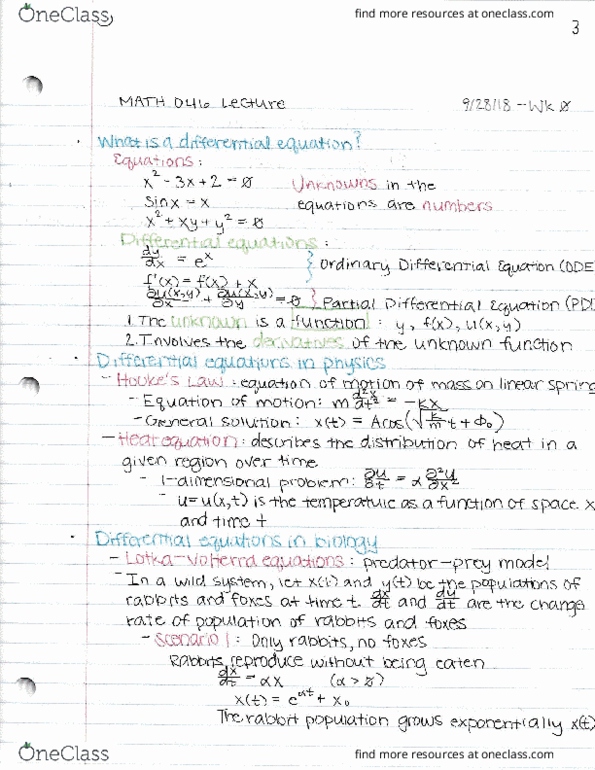 OneClass
find more resources at oneclass.com
3
MATH 046 Lecture
9/28/18 - Wk 0
What is a differential equation?
Equations:
x² - 3x + 2 = 0 Unknowns in the
sinx = x equations are numbers
x² + xy + y² = 0
Differential equations:
dy/dx = eˣ
f'(x) = f(x) + x } Ordinary Differential Equation (ODE
∂u(x,y)/∂x + ∂u(x,y)/∂y = 0 } Partial Differential Equation (PD
1. The unknown is a function: y, f(x), u(x,y)
2. Involves the derivatives of the unknown function
Differential equations in physics
- Hooke's Law: equation of motion of mass on linear spring
- Equation of motion: m d²x/dt² = -kx
- General solution: x(t) = Acos(√(k/m) t + Φ₀)
- Heat equation: describes the distribution of heat in a
given region over time
- 1-dimensional problem: ∂u/∂t = α ∂²u/∂x²
- u = u(x,t) is the temperature as a function of space x
and time t
Differential equations in biology
- Lotka-Volterra equations: predator-prey model
- In a wild system, let x(t) and y(t) be the populations of
rabbits and foxes at time t. dx/dt and dy/dt are the change
rate of population of rabbits and foxes
- Scenario 1: Only rabbits, no foxes
Rabbits reproduce without being eaten
dx/dt = αx (α > 0)
x(t) = e^αt + x₀
The rabbit population grows exponentially x(t)
OneClass
find more resources at oneclass.com